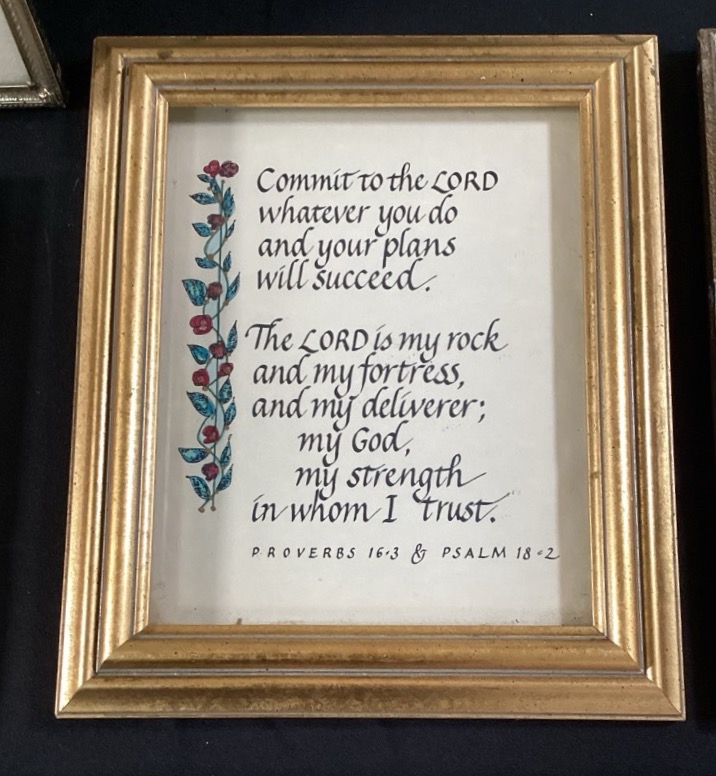 Commit to the LORD
whatever you do
and your plans
will succeed.
The LORD is my rock
and my fortress,
and my deliverer;
my God,
my strength
in whom I trust.
PROVERBS 16·3 & PSALM 18·2